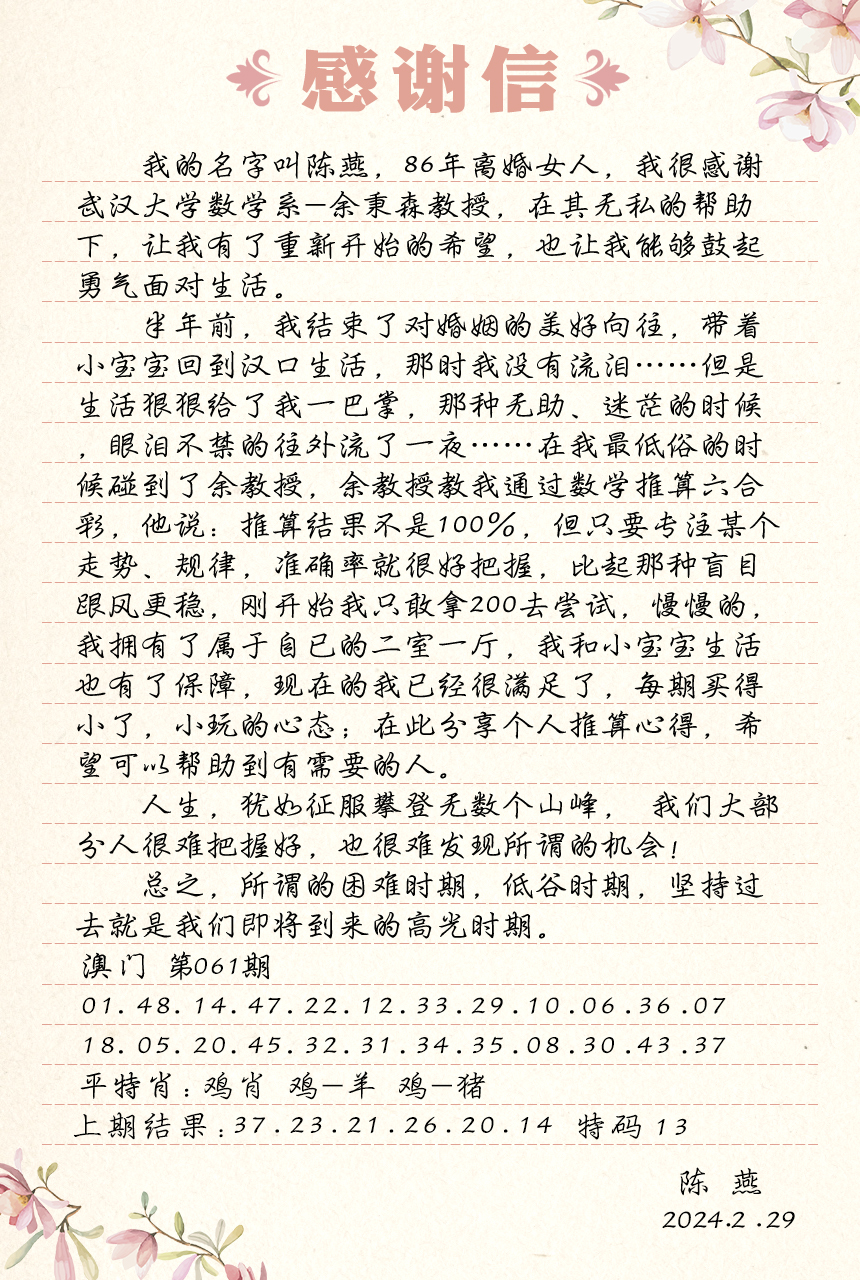 感谢信
我的名字叫陈燕，86年离婚女人，我很感谢
武汉大学数学系—余秉森教授，在其无私的帮助
下，让我有了重新开始的希望，也让我能够鼓起
勇气面对生活。
半年前，我结束了对婚姻的美好向往，带着
小宝宝回到汉口生活，那时我没有流泪……但是
生活狠狠给了我一巴掌，那种无助、迷茫的时候
，眼泪不禁的往外流了一夜……在我最低俗的时
候碰到了余教授，余教授教我通过数学推算六合
彩，他说：推算结果不是100%，但只要专注某个
走势、规律，准确率就很好把握，比起那种盲目
跟风更稳，刚开始我只敢拿200去尝试，慢慢的，
我拥有了属于自已的二室一厅，我和小宝宝生活
也有了保障，现在的我已经很满足了，每期买得
小了，小玩的心态；在此分享个人推算心得，希
望可以帮助到有需要的人。
人生，犹如征服攀登无数个山峰， 我们大部
分人很难把握好，也很难发现所谓的机会！
总之，所谓的困难时期，低谷时期，坚持过
去就是我们即将到来的高光时期。
澳门 第061期
01.48.14.47.22.12.33.29.10.06.36.07
18.05.20.45.32.31.34.35.08.30.43.37
平特肖：鸡肖 鸡—羊 鸡—猪
上期结果：37.23.21.26.20.14 特码 13
陈 燕
2024.2.29